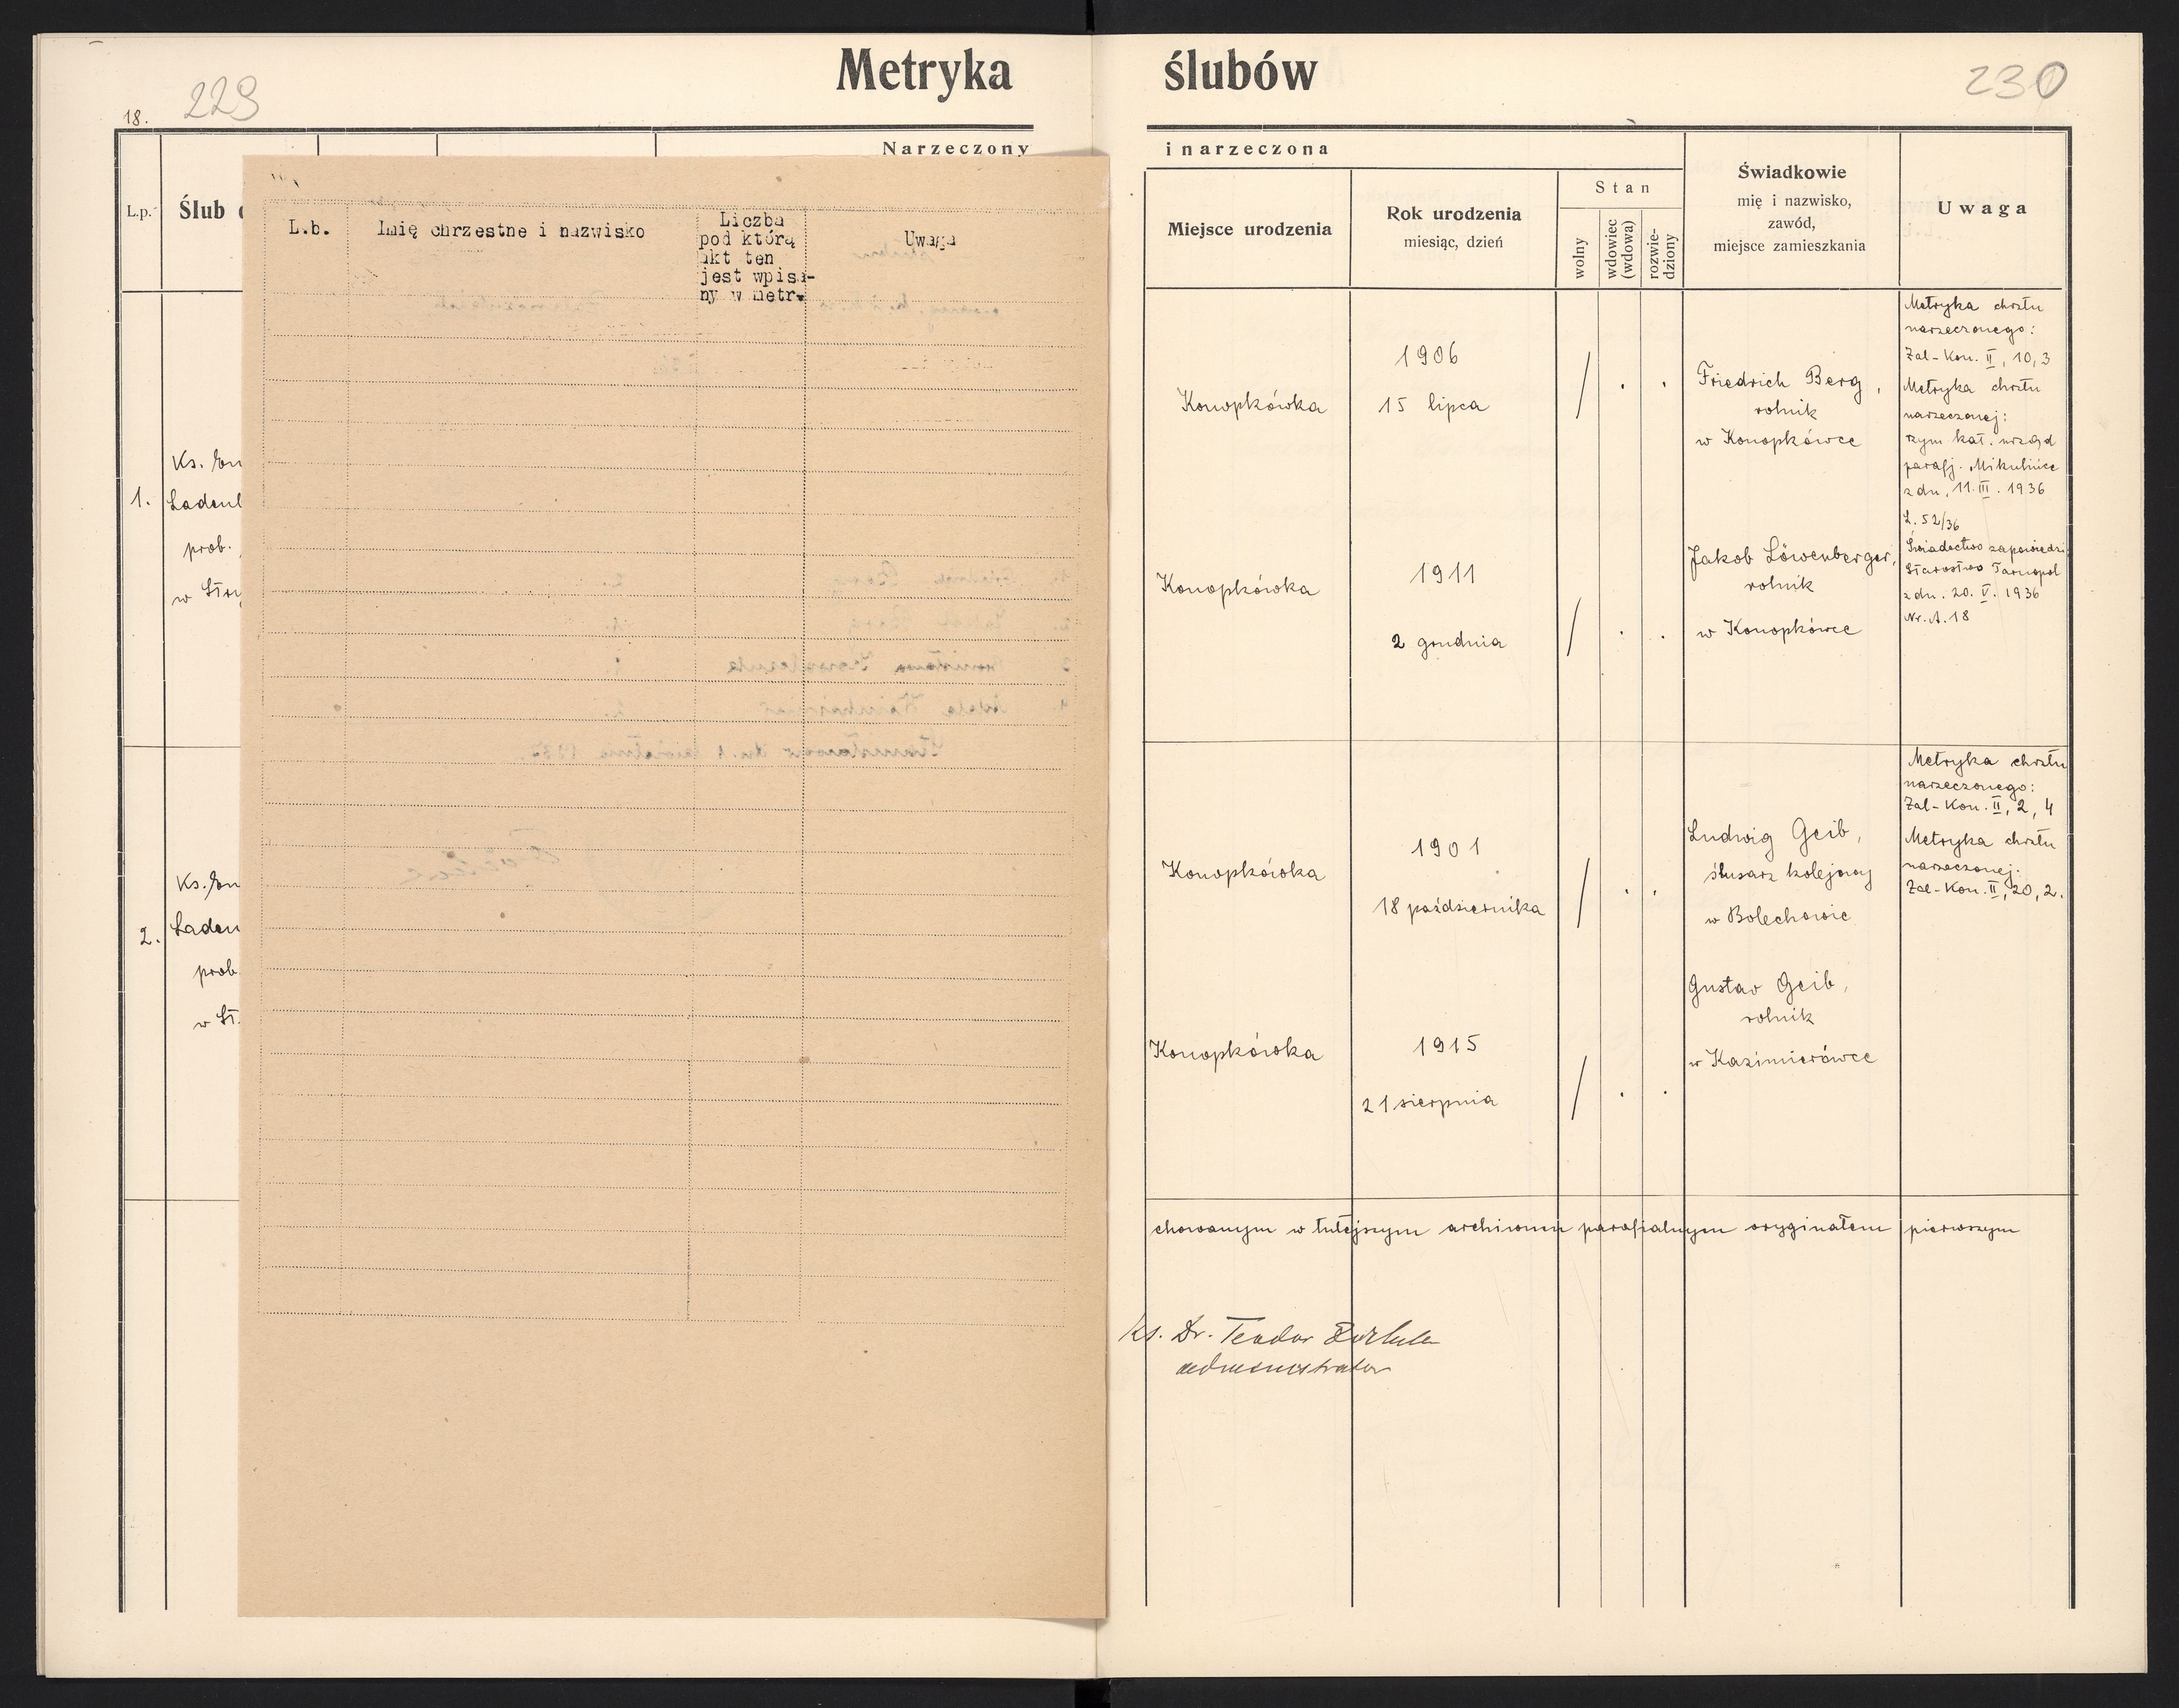 Metryka ślubów
229
230
18.
Narzeczony i narzeczona
L.p.
Ślub
Miejsce urodzenia
Rok urodzenia
miesiąc, dzień
Stan
wolny
wdowiec
(wdowa)
rozwie-
dziony
Świadkowie
mię i nazwisko,
zawód,
miejsce zamieszkania
Uwaga
L.b.
Imię chrzestne i nazwisko
Liczba
pod którą
akt ten
jest wpisa-
ny w metr.
Uwaga
1.
Ks.
prob.
w
Konopkówka
1906
15 lipca
Konopkówka
1911
2 grudnia
Friedrich Berg,
rolnik
w Konopkówce
Jakob Löwenberger,
rolnik
w Konopkówce
Metryka chrztu
narzeczonego:
Zal-Kon. II, 10,3
Metryka chrztu
narzeczonej:
rzym. kat. urząd
parafj. Mikulińce
z dn. 11. III. 1936
L. 52/36
Świadectwo zapowiedzi
Starostwo Tarnopol
z dn. 20. V. 1936
Nr. A. 18
2.
Ks.
prob
w St.
Konopkówka
1901
18 października
Konopkówka
1915
21 sierpnia
Ludwig Geib,
ślusarz kolejowy
w Bolechowie
Gustav Geib,
rolnik
w Kazimierówce
Metryka chrztu
narzeczonego:
Zal-Kon. II, 2, 4
Metryka chrztu
narzeczonej:
Zal-Kon. II, 20, 2.
chowanym w tutejszym archiwum parafialnym oryginałem pierwszym
Ks. Dr. Teodor
administrator